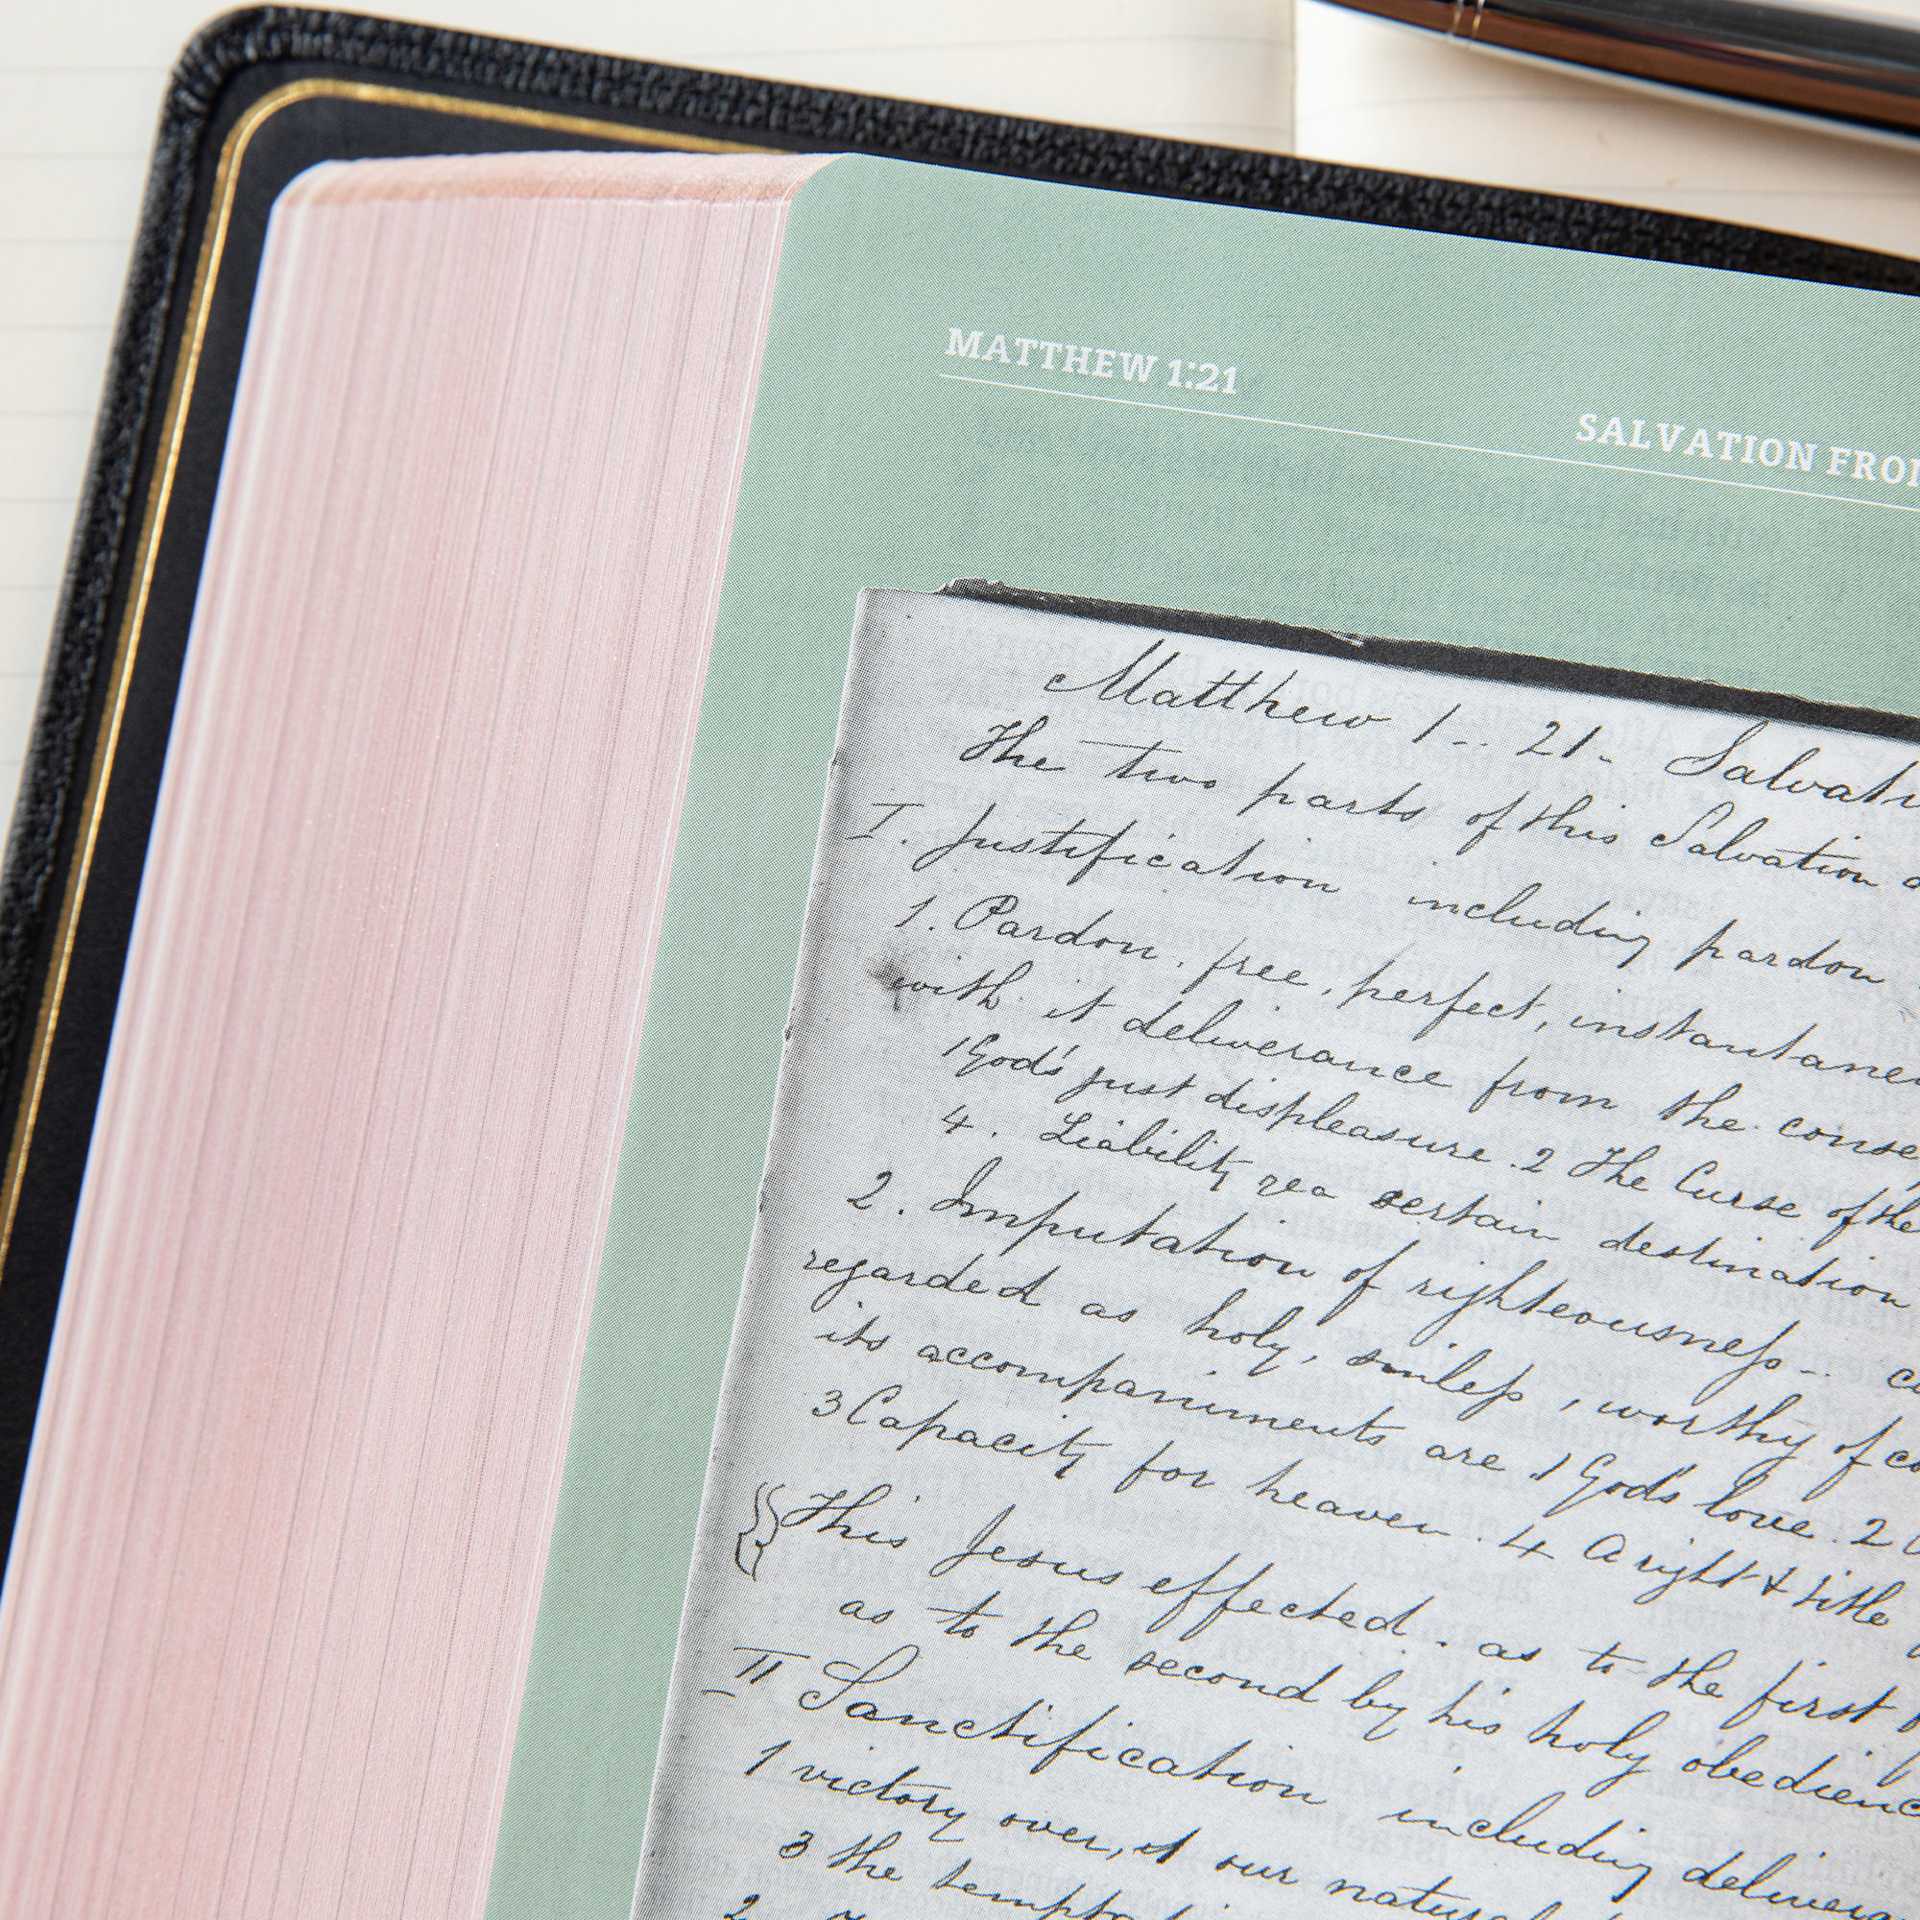 MATTHEW 1:21
SALVATION FRO
Matthew 1-. 21- Salvati
The two parts of this Salvation a
I. Justification including pardon
1. Pardon, free, perfect, instantane
with it deliverance from the conse
1 God's just displeasure. 2 The Curse of the
4. Liability certain destination
2. Imputation of righteousness-..
regarded as holy, sinless, worthy of co
its accompaniments are 1 God's love. 2
3 Capacity for heaven. 4 A right & title
This Jesus effected. as to the first
as to the second by his holy obedienc
II Sanctification including delivera
1 victory over, our natural
3 the tempta
2